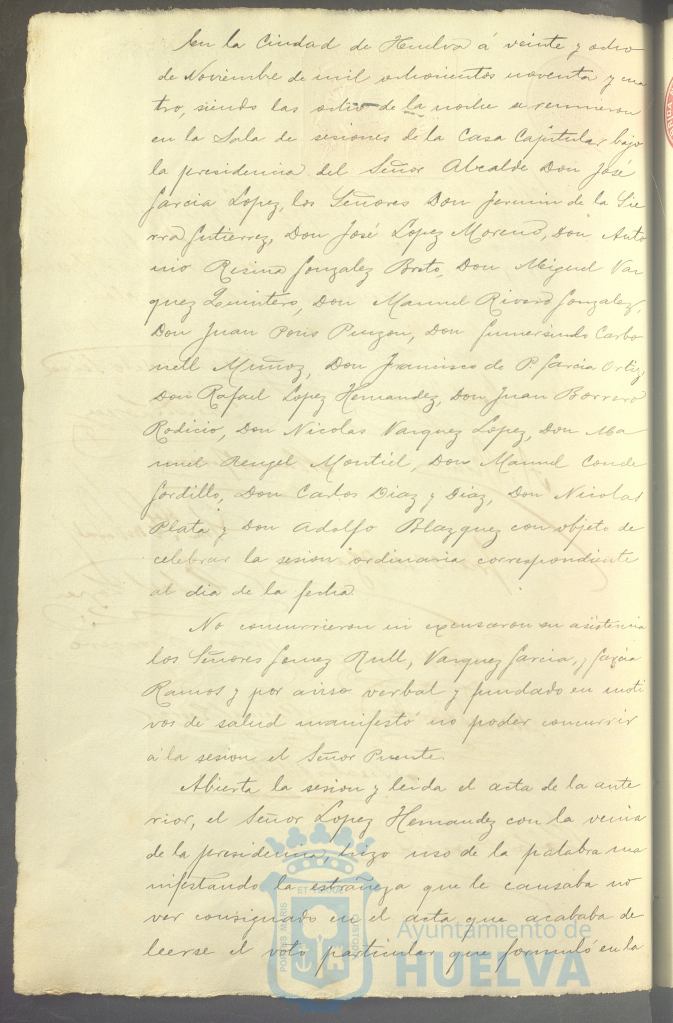 En la Ciudad de Huelva á veinte y ocho
de Noviembre de mil ochocientos noventa y cua
tro, siendo las ocho de la noche se reunieron
en la Sala de sesiones de la Casa Capitular bajo
la presidencia del Señor Alcalde Don José
Garcia Lopez, los Señores Don Fermin de la Sie
rra Gutierrez, Don José Lopez Moreno, Don Anto
nio Resina Gonzalez Brito, Don Miguel Vaz
quez Quintero, Don Manuel Rivero Gonzalez,
Don Juan Pons Pinzon, Don Gumersindo Carbo
nell Muñoz, Don Francisco de P. Garcia Ortiz,
Don Rafael Lopez Hernandez, Don Juan Borrero
Rodicio, Don Nicolas Vazquez Lopez, Don Ma
nuel Rengel Montiel, Don Manuel Conde
Gordillo, Don Carlos Diaz y Diaz, Don Nicolas
Plata y Don Adolfo Blazquez con objeto de
celebrar la sesion ordinaria correspondiente
al dia de la fecha.
No concurrieron ni excusaron su asistencia
los Señores Gomez Rull, Vazquez Garcia, y Garcia
Ramos y por aviso verbal y fundado en moti
vos de salud manifestó no poder concurrir
á la sesion el Señor Puente.
Abierta la sesion y leida el acta de la ante
rior, el Señor Lopez Hernandez con la venia
de la presidencia, hizo uso de la palabra ma
nifestando la estrañeza que le causaba no
ver consignado en el acta que acababa de
leerse el voto particular que formuló en la
PORTUS MARIS
ET
CUSTODIA
Ayuntamiento de
HUELVA